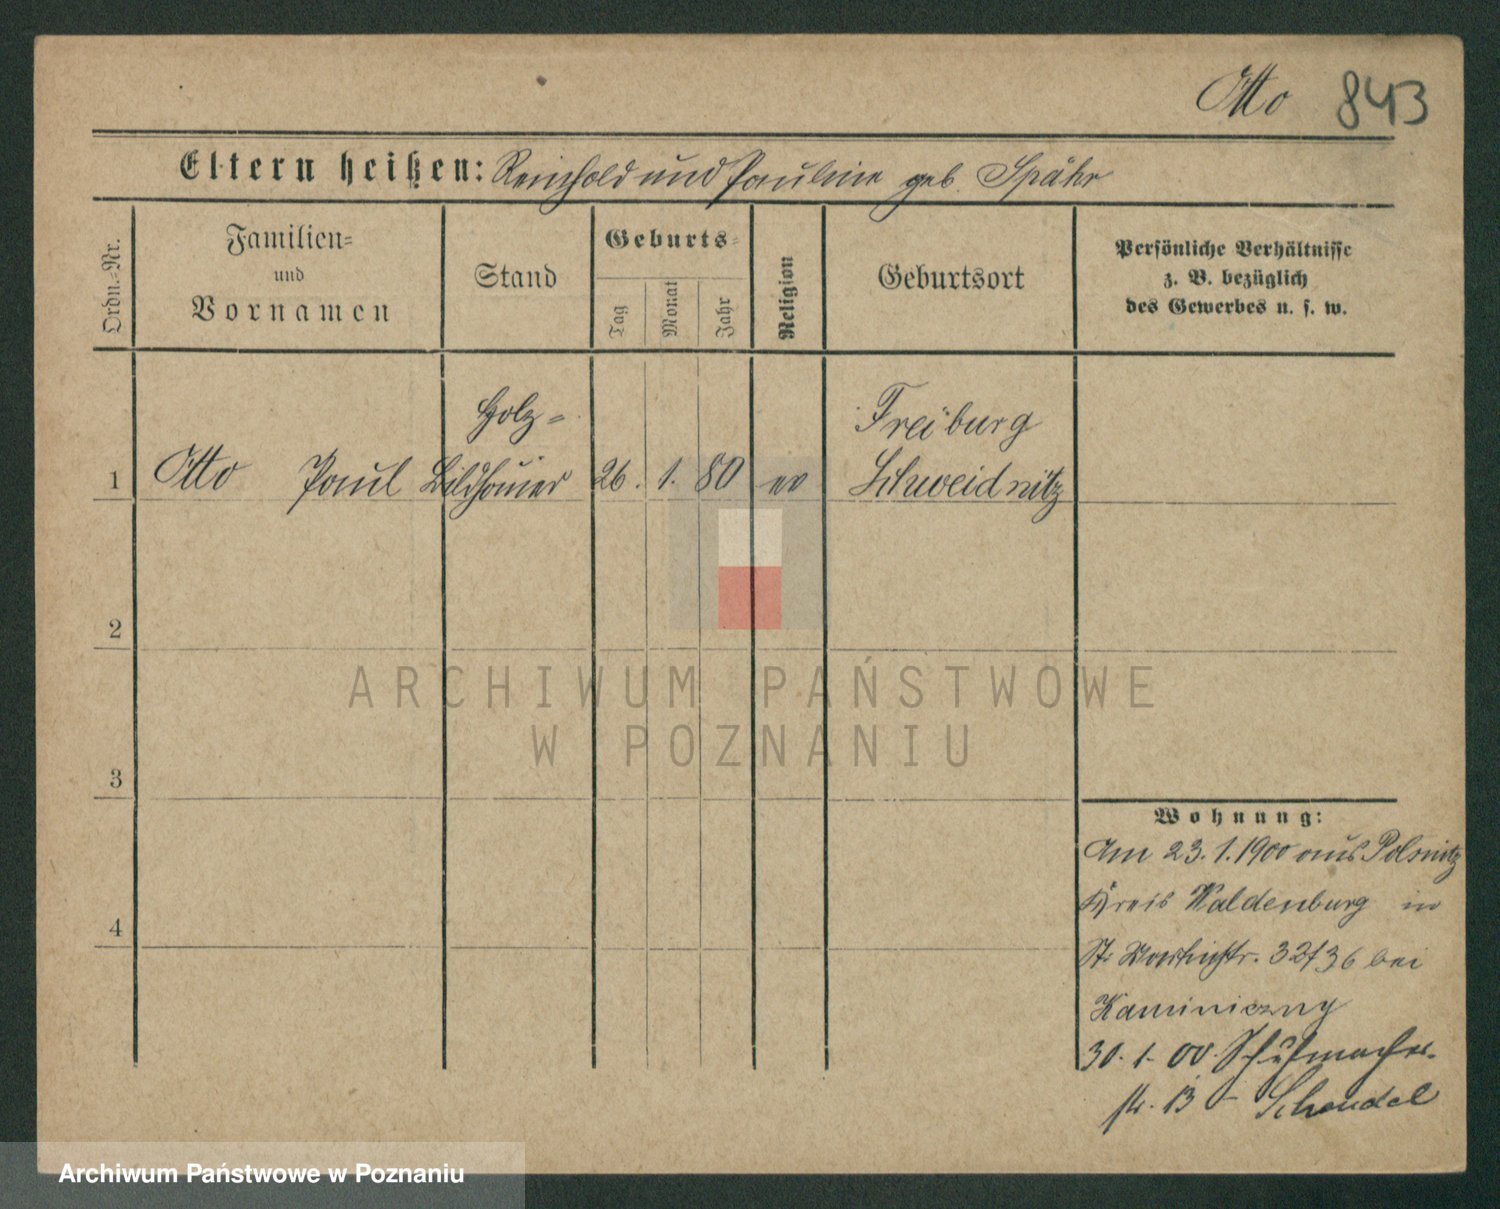 Otto 843
Eltern heißen: Reinhold und Pauline geb. Spähr
Ordn.=Nr.
Familien=
und
Vornamen
Stand
Geburts=
Tag
Monat
Jahr
Religion
Geburtsort
Persönliche Verhältnisse
z. B. bezüglich
des Gewerbes u. s. w.
Holz=
Freiburg
1 Otto Paul Bildhauer 26. 1. 80 ev Schweidnitz
2
3
4
ARCHIWUM PAŃSTWOWE
W POZNANIU
Wohnung:
Am 23.1.1900 aus Polsnitz
Kreis Waldenburg in
St. Martinstr. 32/36 bei
Kaminiczny
30. 1. 00. Schuhmacher-
str. 13 - Schendel
Archiwum Państwowe w Poznaniu